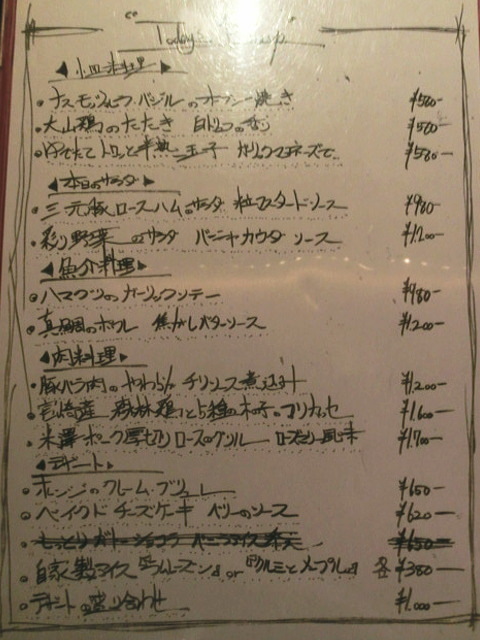 Today's
◀小皿料理▶
・ナス・モッツァレラ・バジルのオーブン焼き ¥580ー
・大山鶏のたたき 白トリュフの香り ¥560ー
・ゆでたて 半熟玉子 ガーリックマヨネーズで ¥580ー
◀本日のサラダ▶
・三元豚ロースハムのサラダ 粒マスタードソース ¥980ー
・彩り野菜のサラダ バーニャカウダソース ¥1,200ー
◀魚介料理▶
・ハマグリのガーリックソテー ¥980ー
・真鯛のポワレ 焦がしバターソース ¥1,200ー
◀肉料理▶
・豚バラ肉のやわらか チリソース煮込み ¥1,200ー
・宮崎産 森林鶏と5種の木の子のフリカッセ ¥1,600ー
・米澤ポーク厚切りロースのグリル ローズマリー風味 ¥1,700ー
◀デザート▶
・オレンジのクレーム・ブリュレ ¥650ー
・ベイクドチーズケーキ ベリーのソース ¥620ー
・もっとりガトーショコラ バニラアイス添え ¥650ー
・自家製アイス 『ラムレーズン』or『クルミとメープル』 各¥380ー
・デザートの盛り合わせ ¥1,000ー